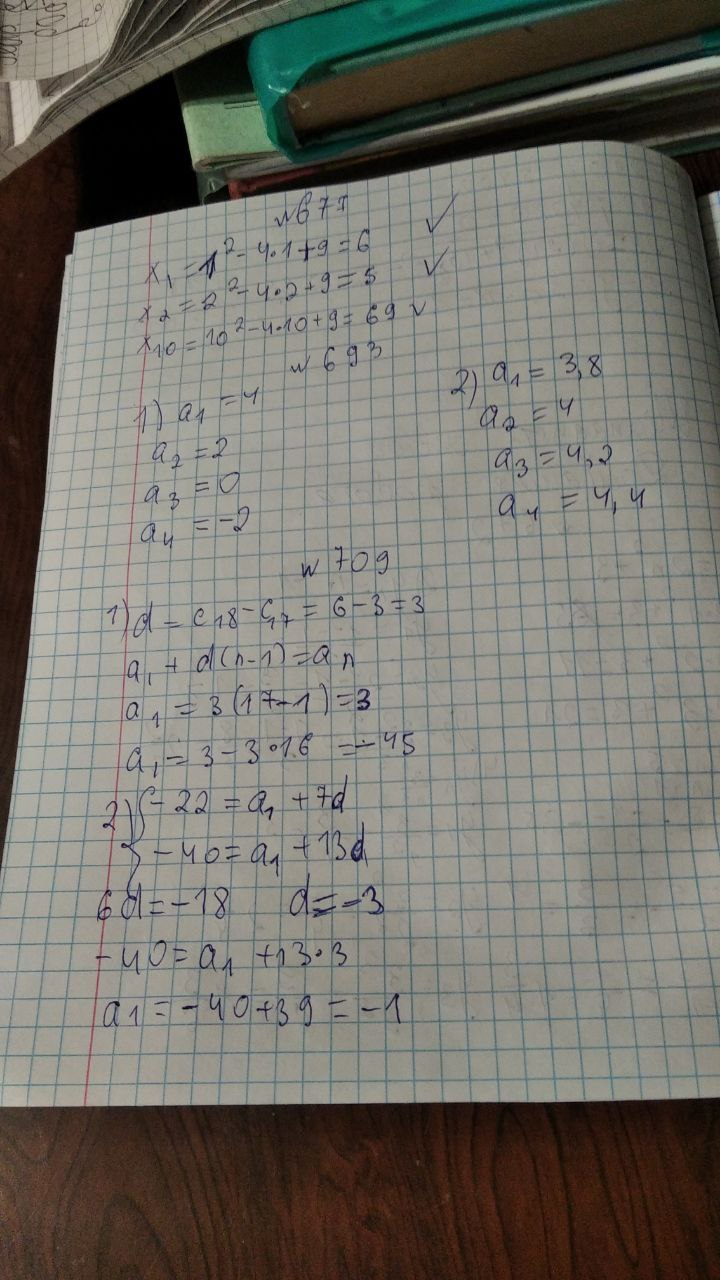 № 671
x₁ = 1² - 4·1 + 9 = 6 ✓
x₂ = 2² - 4·2 + 9 = 5 ✓
x₁₀ = 10² - 4·10 + 9 = 69 ✓
№ 693
1) a₁ = 4
a₂ = 2
a₃ = 0
a₄ = -2
2) a₁ = 3,8
a₂ = 4
a₃ = 4,2
a₄ = 4,4
№ 709
1) d = c₁₈ - c₁₇ = 6 - 3 = 3
a₁ + d(n-1) = aₙ
a₁ = 3(17-1) = 3
a₁ = 3 - 3·16 = -45
2) { -22 = a₁ + 7d
-40 = a₁ + 13d
6d = -18 d = -3
-40 = a₁ + 13·3
a₁ = -40 + 39 = -1